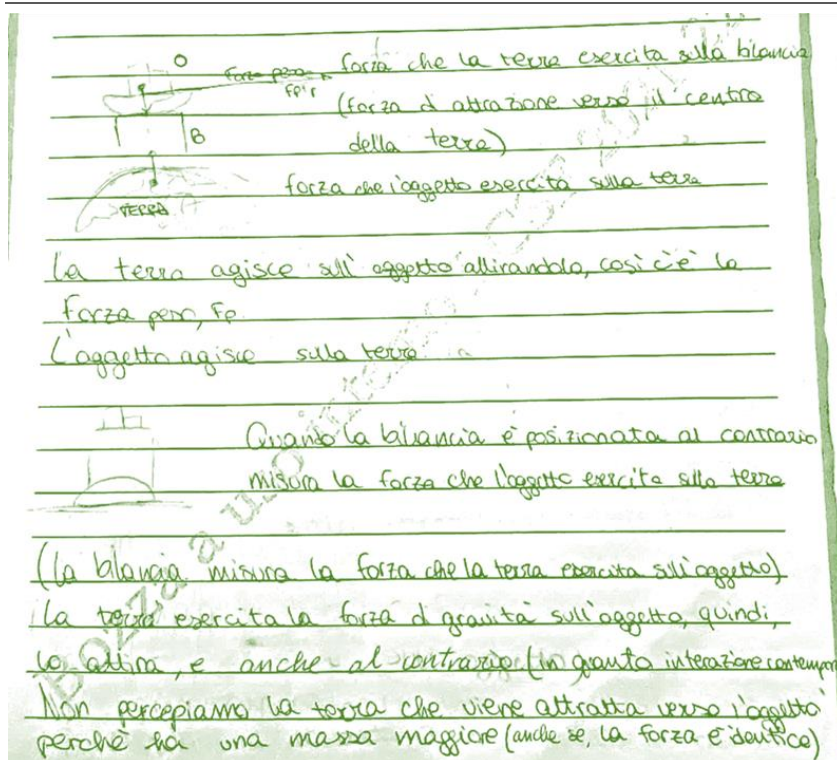 O
forza che la terra esercita sulla bilancia
Forza peso
FP
(forza d'attrazione verso il centro
B
della terra)
forza che l'oggetto esercita sulla terra
TERRA
La terra agisce sull'oggetto attirandolo, così c'è la
forza peso, Fp.
L'oggetto agisce sulla terra
Quando la bilancia è posizionata al contrario
misura la forza che l'oggetto esercita sulla terra
(la bilancia misura la forza che la terra esercita sull'oggetto)
La terra esercita la forza di gravità sull'oggetto, quindi,
lo attira, e anche al contrario (in quanto interazione contempor
Non percepiamo la terra che viene attratta verso l'oggetto
perchè ha una massa maggiore (anche se, la forza è identica)
Bozza a uso interno